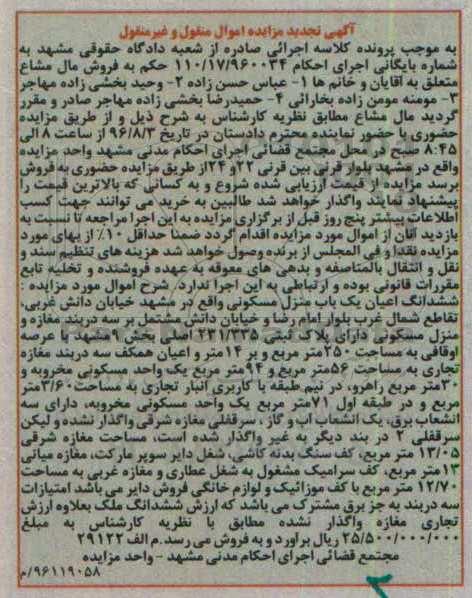 آگهی تجدید مزایده اموال منقول و غیرمنقول
به موجب پرونده کلاسه اجرائی صادره از شعبه دادگاه حقوقی مشهد به
شماره بایگانی اجرای احکام ۱۱۰/۱۷/۹۶۰۰۳۴ حکم به فروش مال مشاع
متعلق به آقایان و خانم ها ۱- عباس حسن زاده ۲- وحید بخشی زاده مهاجر
۳- مومنه مومن زاده بخارائی ۴- حمیدرضا بخشی زاده مهاجر صادر و مقرر
گردید مال مشاع مطابق نظریه کارشناس به شرح ذیل و از طریق مزایده
حضوری با حضور نماینده محترم دادستان در تاریخ ۹۶/۸/۳ از ساعت ۸ الی
۸:۴۵ صبح در محل مجتمع قضائی اجرای احکام مدنی مشهد واحد مزایده
واقع در مشهد بلوار قرنی بین قرنی ۲۲ و ۲۴ از طریق مزایده حضوری به فروش
برسد مزایده از قیمت ارزیابی شده شروع و به کسانی که بالاترین قیمت را
پیشنهاد نمایند واگذار خواهد شد طالبین به خرید می توانند جهت کسب
اطلاعات بیشتر پنج روز قبل از برگزاری مزایده به این اجرا مراجعه تا نسبت به
بازدید آنان از اموال مورد مزایده اقدام گردد ضمنا حداقل ۱۰٪ از بهای مورد
مزایده نقدا و فی المجلس از برنده وصول خواهد شد هزینه های تنظیم سند و
نقل و انتقال بالمناصفه و بدهی های معوقه به عهده فروشنده و تخلیه تابع
مقررات قانونی بوده و ارتباطی به این اجرا ندارد. شرح اموال مورد مزایده :
ششدانگ اعیان یک باب منزل مسکونی واقع در مشهد خیابان دانش غربی،
تقاطع شمال غرب بلوار امام رضا و خیابان دانش مشتمل بر سه دربند مغازه و
منزل مسکونی دارای پلاک ثبتی ۲۲۱/۳۳۵ اصلی بخش ۹ مشهد با عرصه
اوقافی به مساحت ۲۵۰ متر مربع و بر ۱۴ متر و اعیان همکف سه دربند مغازه
تجاری به مساحت ۵۶ متر مربع و ۹۴ متر مربع یک واحد مسکونی مخروبه و
۳۰ متر مربع راهرو، در نیم طبقه با کاربری انبار تجاری به مساحت ۳/۶۰ متر
مربع و در طبقه اول ۷۱ متر مربع یک واحد مسکونی مخروبه، دارای سه
انشعاب برق، یک انشعاب آب و گاز ، سرقفلی مغازه شرقی واگذار نشده و لیکن
سرقفلی ۲ در بند دیگر به غیر واگذار شده است، مساحت مغازه شرقی
۱۳/۰۵ متر مربع، کف سنگ بدنه کاشی، شغل دایر سوپر مارکت، مغازه میانی
۱۳ متر مربع، کف سرامیک مشغول به شغل عطاری و مغازه غربی به مساحت
۱۲/۷۰ متر مربع با کف موزائیک و لوازم خانگی فروش دایر می باشد امتیازات
سه دربند به جز برق مشترک می باشد که ارزش ششدانگ ملک بعلاوه ارزش
تجاری مغازه واگذار نشده مطابق با نظریه کارشناس به مبلغ
۲۵/۵۰۰/۰۰۰/۰۰۰ ریال براورد و به فروش می رسد. م الف ۲۹۱۲۲
مجتمع قضائی اجرای احکام مدنی مشهد - واحد مزایده
۹۶۱۱۹۰۵۸/م
۲